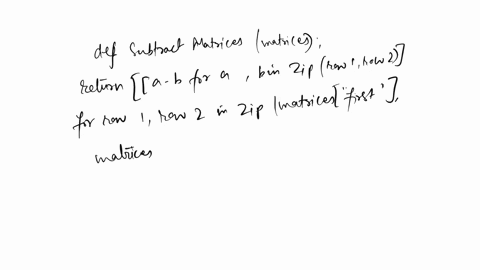 def Subtract Matrices (matrices);
return [[a-b for a , b in Zip (row 1, row 2)]
for row 1, row 2 in Zip (matrices["first"],
matrices